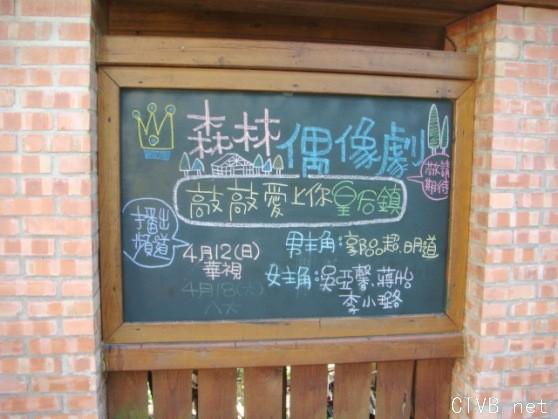 森林偶像劇
敬請
期待
敲敲愛上你皇后鎮
播出
頻道
4月12(日)
華視
4月18(六)
八大
男主角:郭品超.明道
女主角:吳亞馨.蔣怡
李小璐
CTVB.net